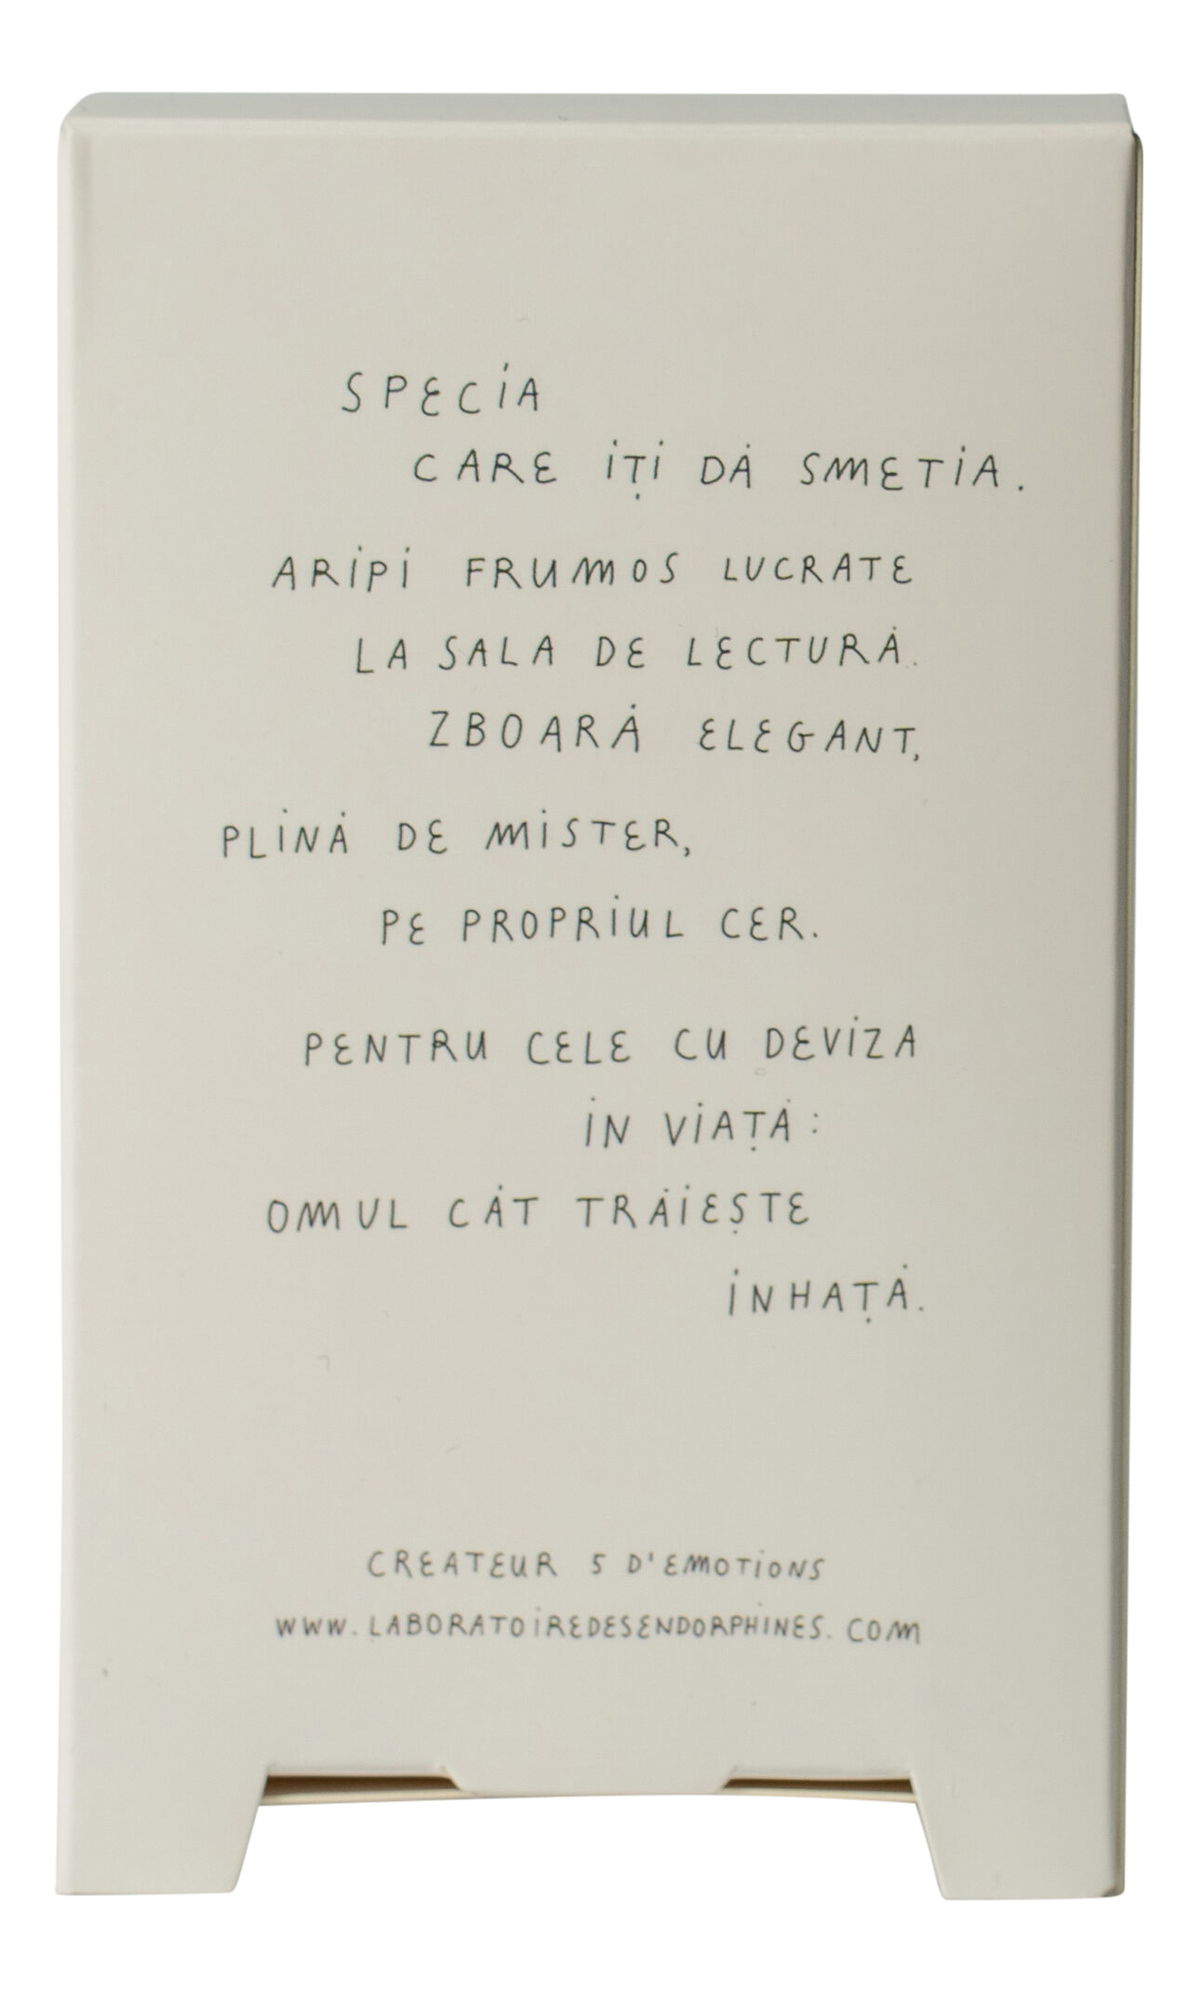 SPECIA
CARE IȚI DĂ SMETIA.
ARIPI FRUMOS LUCRATE
LA SALA DE LECTURĂ.
ZBOARĂ ELEGANT,
PLINĂ DE MISTER,
PE PROPRIUL CER.
PENTRU CELE CU DEVIZA
ÎN VIAȚĂ:
OMUL CÂT TRĂIEȘTE
ÎNHAȚĂ.
CREATEUR 5 D'EMOTIONS
WWW.LABORATOIREDESENDORPHINES.COM